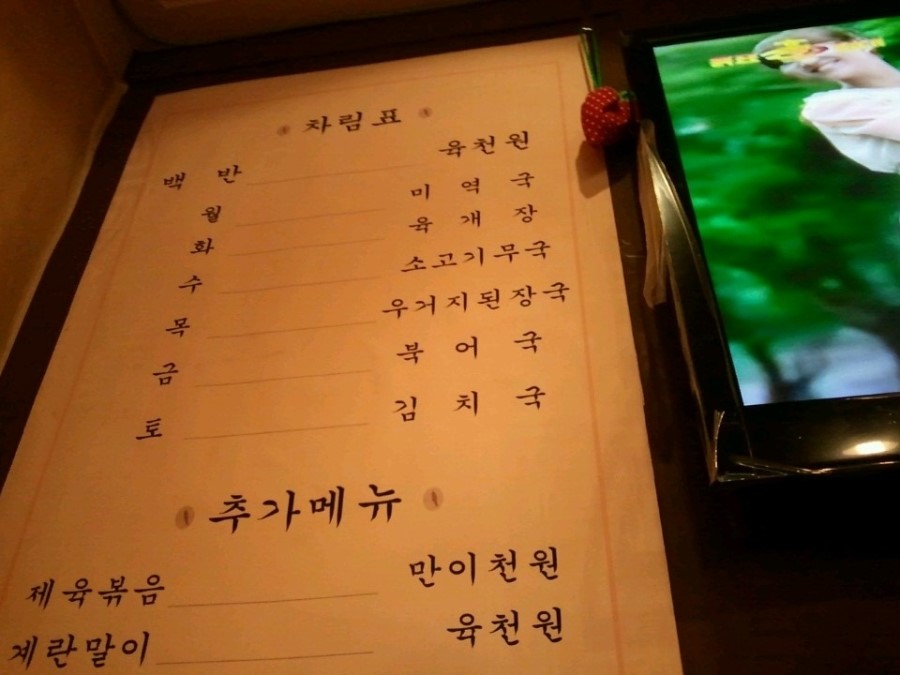 차림표
백 반 육천원
월 미 역 국
화 육 개 장
수 소고기무국
목 우거지된장국
금 북 어 국
토 김 치 국
추가메뉴
제육볶음 만이천원
계란말이 육천원